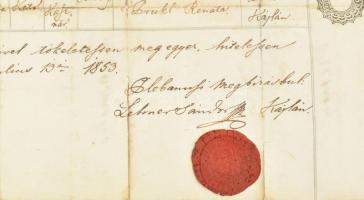 Brükl Renata Káplán
nár.
tökéletessen megegyez, hitelessen
Julius 13án 1853.
Plebanusi megbizásbul
Lehner Sándor Káplán